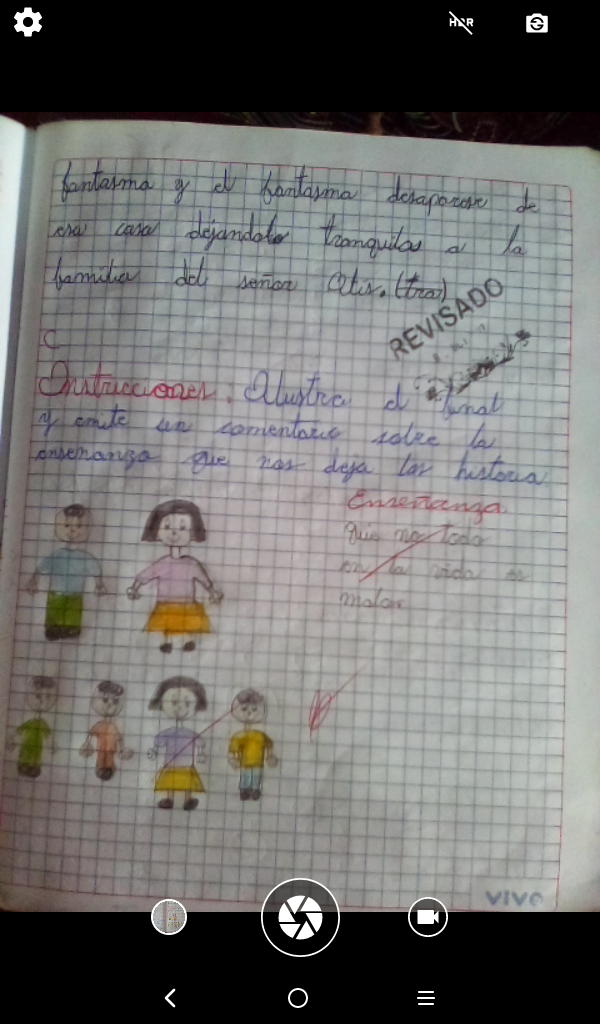 fantasma y el fantasma desaparese de
esa casa dejandolo tranquilas a la
familia del señor Otis. (tra)
REVISADO
C
Instrucciones: Ilustra el final
y emite un comentario sobre la
enseñanza que nos deja las historia
Enseñanza
que no todo
en la vida es
malo
VIVO